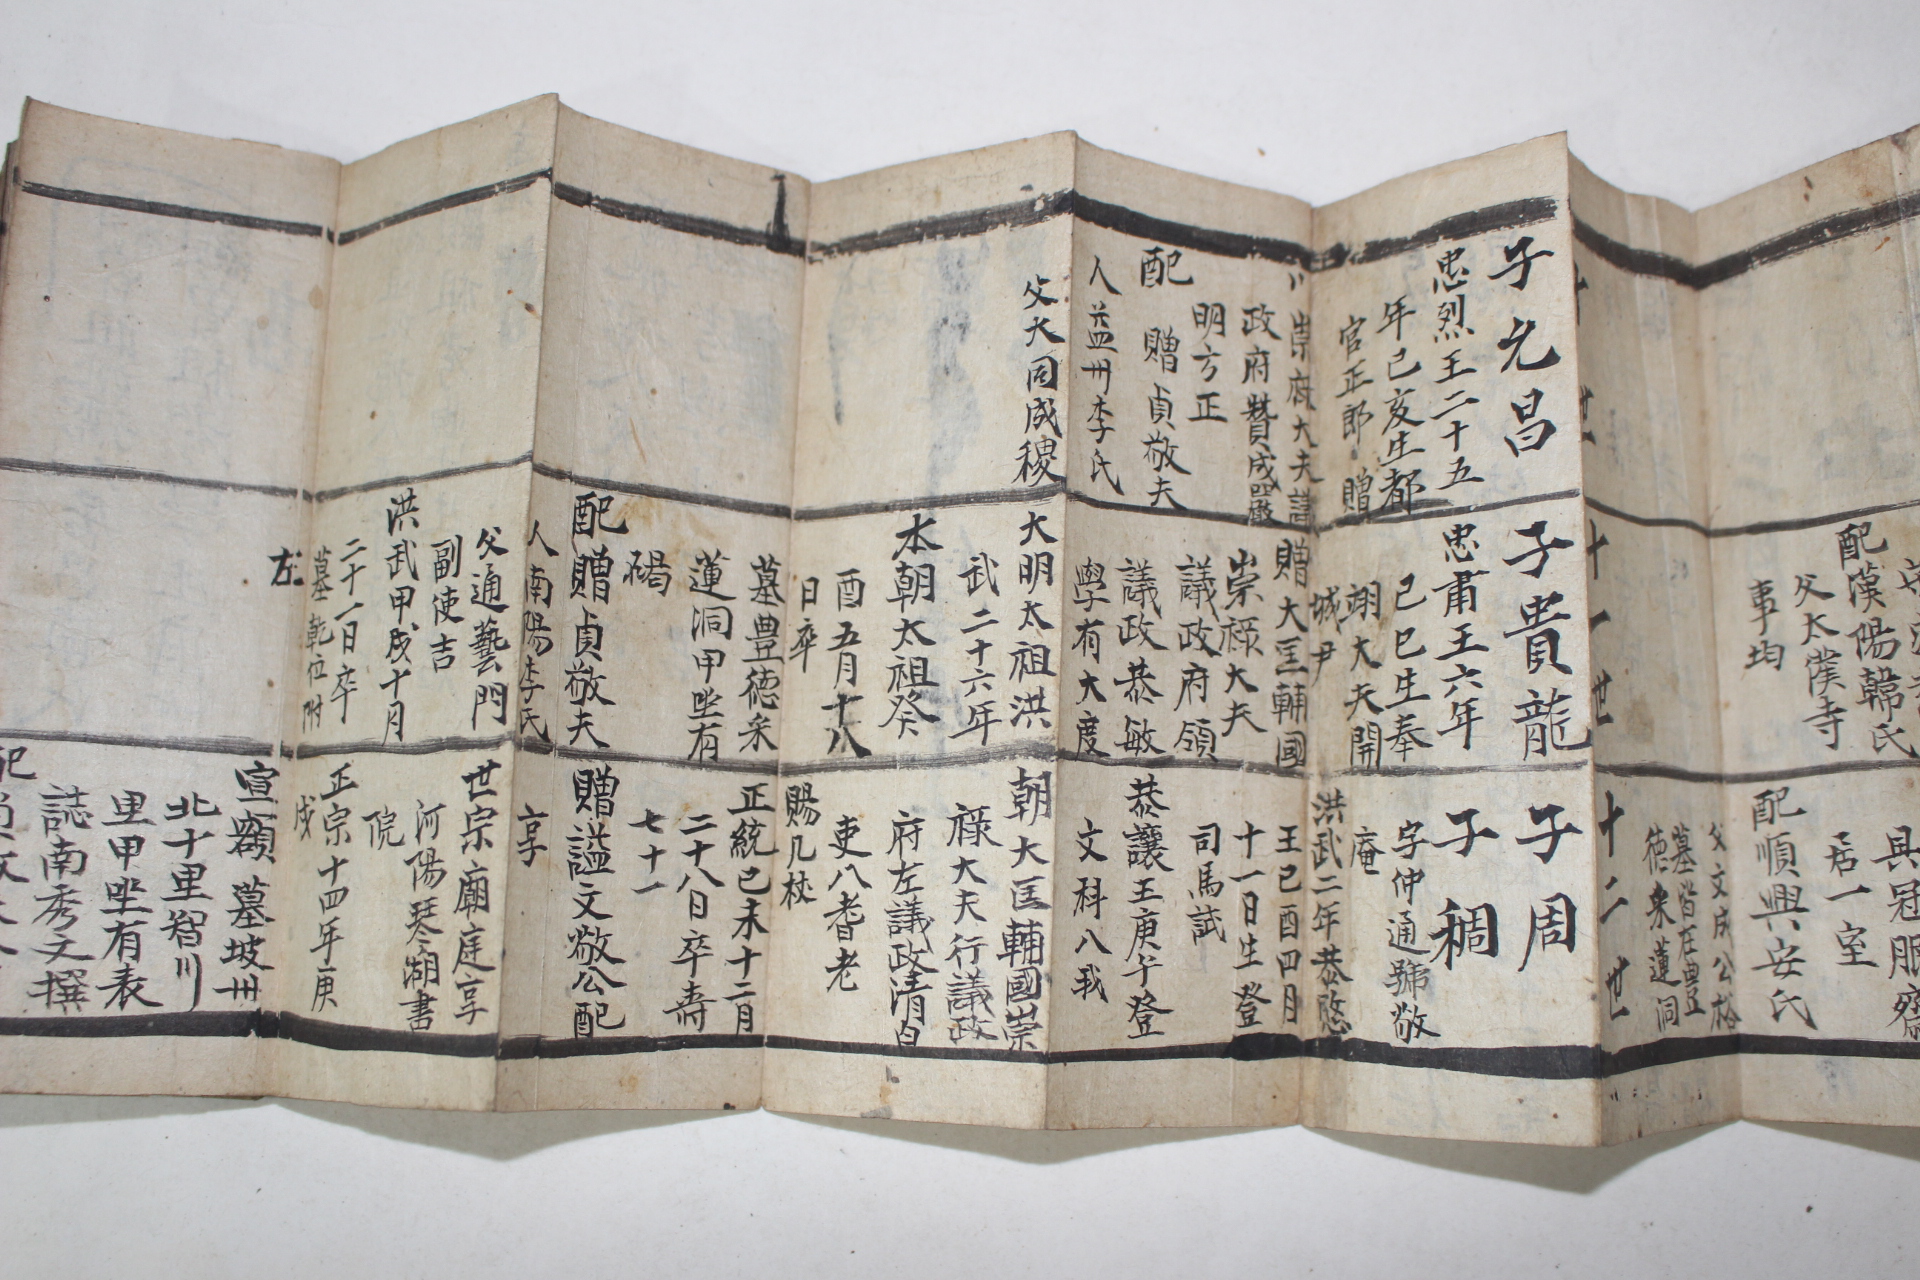 配漢陽韓氏
父太僕寺
事均
具冠服齋
居一室
配順興安氏
父文成公裕
墓皆在豊
德来蓮洞
世
十一世
十二世
子元昌
忠烈王二十五
年己亥生都
官正郎 贈
崇府大夫議
政府贊成嚴
明方正
配 贈貞敬夫
人益州李氏
父大同成稷
子貴龍
忠肅王六年
己巳生奉
翊大夫開
城尹
贈大匡輔國
崇祿大夫
議政府領
議政恭敏
學有大度
大明太祖洪
武二十六年
本朝太祖癸
酉五月十八
日卒
墓豊德来
蓮洞甲坐有
碣
配贈貞敬夫
人南陽李氏
父通藝門
副使吉
洪武甲戌十月
二十一日卒
墓乾位附
左
子周
子稠
字仲通號敬
庵
洪武二年恭愍
王己酉四月
十一日生登
司馬試
恭讓王庚午登
文科入我
朝大匡輔國崇
祿大夫行議政
府左議政清白
吏入耆老
賜几杖
正統己未十二月
二十八日卒壽
七十一
贈謚文敬公配
享
世宗廟庭享
河陽琴湖書
院
正宗十四年庚
戌
宣額 墓坡州
北十里智川
里甲坐有表
誌南秀文撰
配